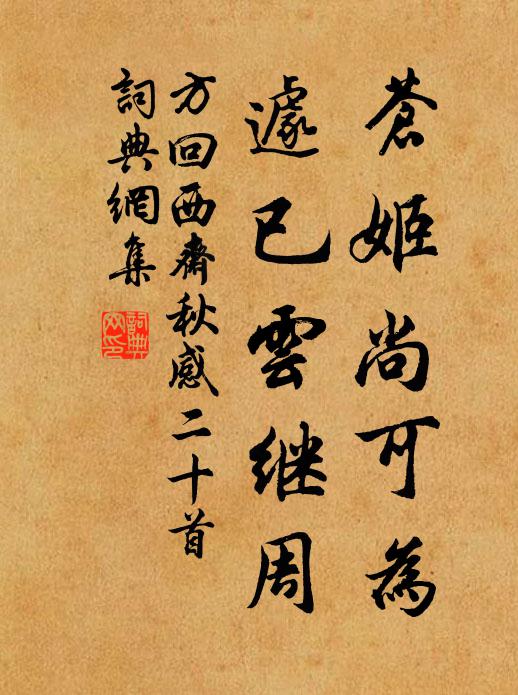 蒼姬尚可為
遽已雲继周
方回西齋秋感二十首
詞典網集
詞典網印